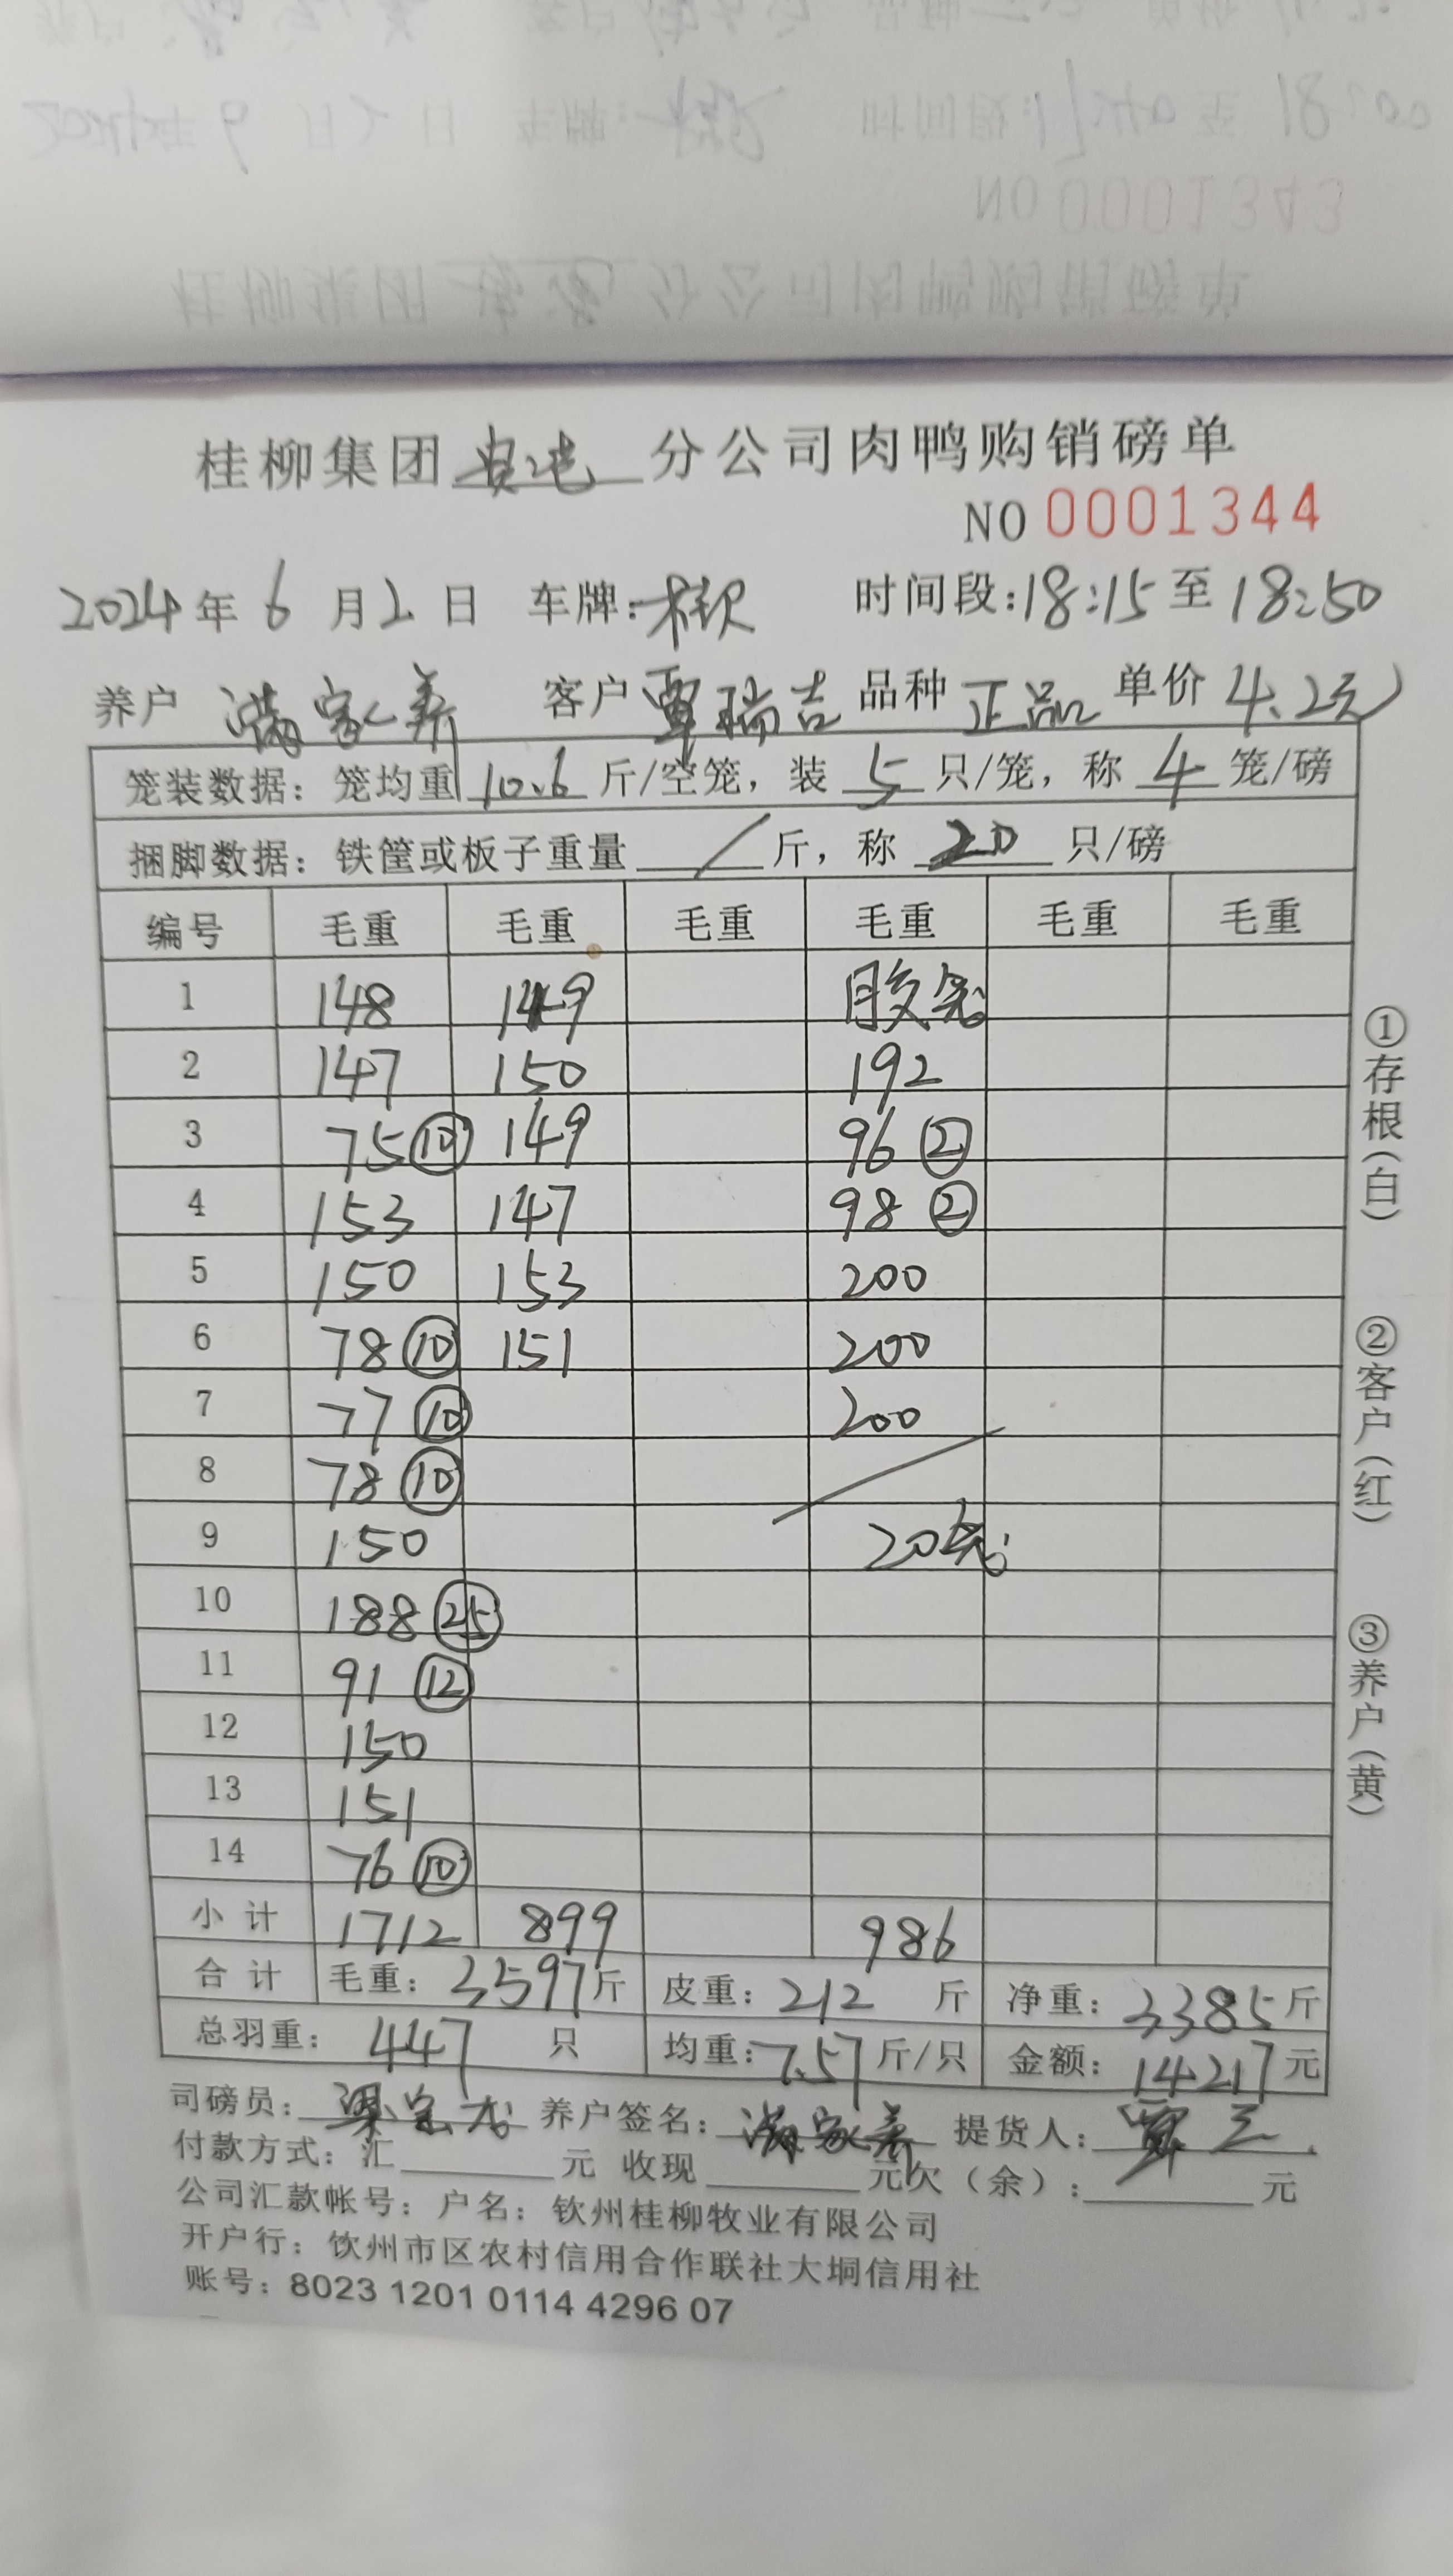 NO 0001343
桂柳集团 分公司肉鸭购销磅单
NO 0001344
2024年 6 月 2 日 车牌: 时间段:18:15 至 18:50
养户 满家养 客户 覃瑞吉 品种 正品 单价 4.2元
笼装数据：笼均重 10.6 斤/空笼，装 5 只/笼，称 4 笼/磅
捆脚数据：铁筐或板子重量 / 斤，称 20 只/磅
编号 毛重 毛重 毛重 毛重 毛重 毛重
1 148 149 胶笼
2 147 150 192
3 75 ⑩ 149 96 ②
4 153 147 98 ②
5 150 153 200
6 78 ⑩ 151 200
7 77 ⑩ 200
8 78 ⑩
9 150 20笼
10 188 ㉕
11 91 ⑫
12 150
13 151
14 76 ⑩
小计 1712 899 986
合计 毛重：3597斤 皮重：212 斤 净重：3385斤
总羽重：447 只 均重：7.57斤/只 金额：14217元
司磅员： 养户签名：满家养 提货人：
付款方式：汇 元 收现 元欠（余）： 元
公司汇款帐号：户名：钦州桂柳牧业有限公司
开户行：钦州市区农村信用合作联社大垌信用社
账号：8023 1201 0114 4296 07
①存根（白）
②客户（红）
③养户（黄）